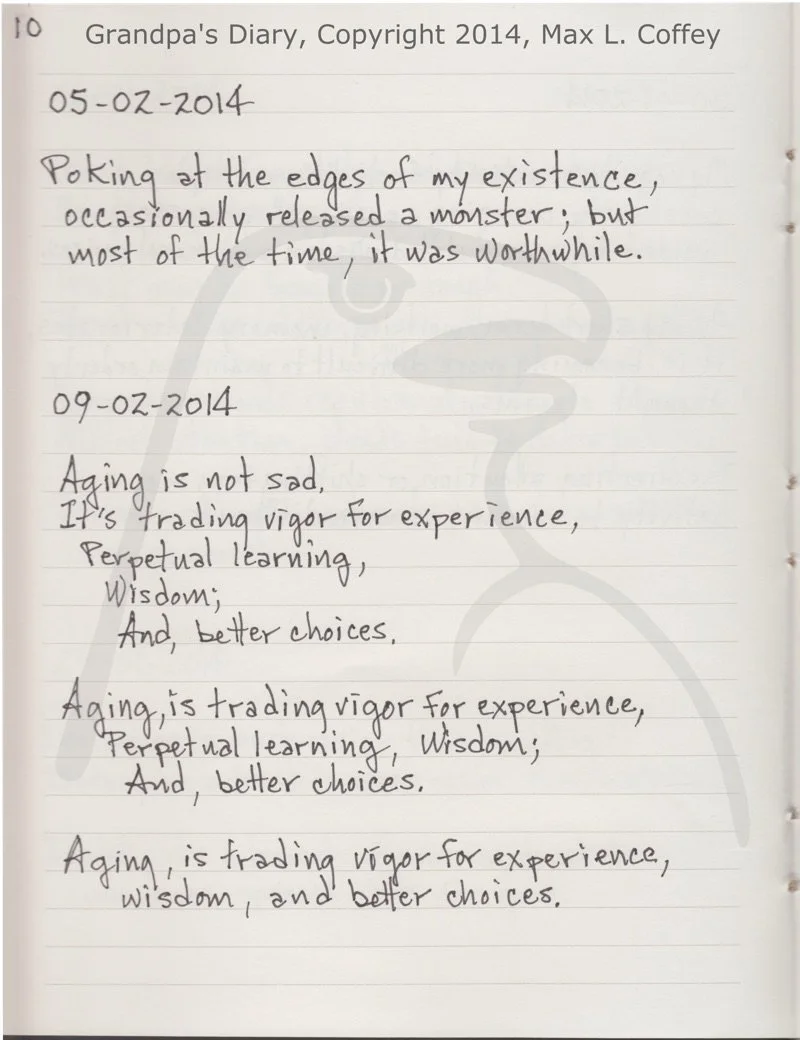 10
Grandpa's Diary, Copyright 2014, Max L. Coffey
05-02-2014
Poking at the edges of my existence,
occasionally released a monster; but
most of the time, it was worthwhile.
09-02-2014
Aging is not sad,
It's trading vigor for experience,
Perpetual learning,
Wisdom;
And, better choices.
Aging, is trading vigor for experience,
Perpetual learning, Wisdom;
And, better choices.
Aging, is trading vigor for experience,
wisdom, and better choices.